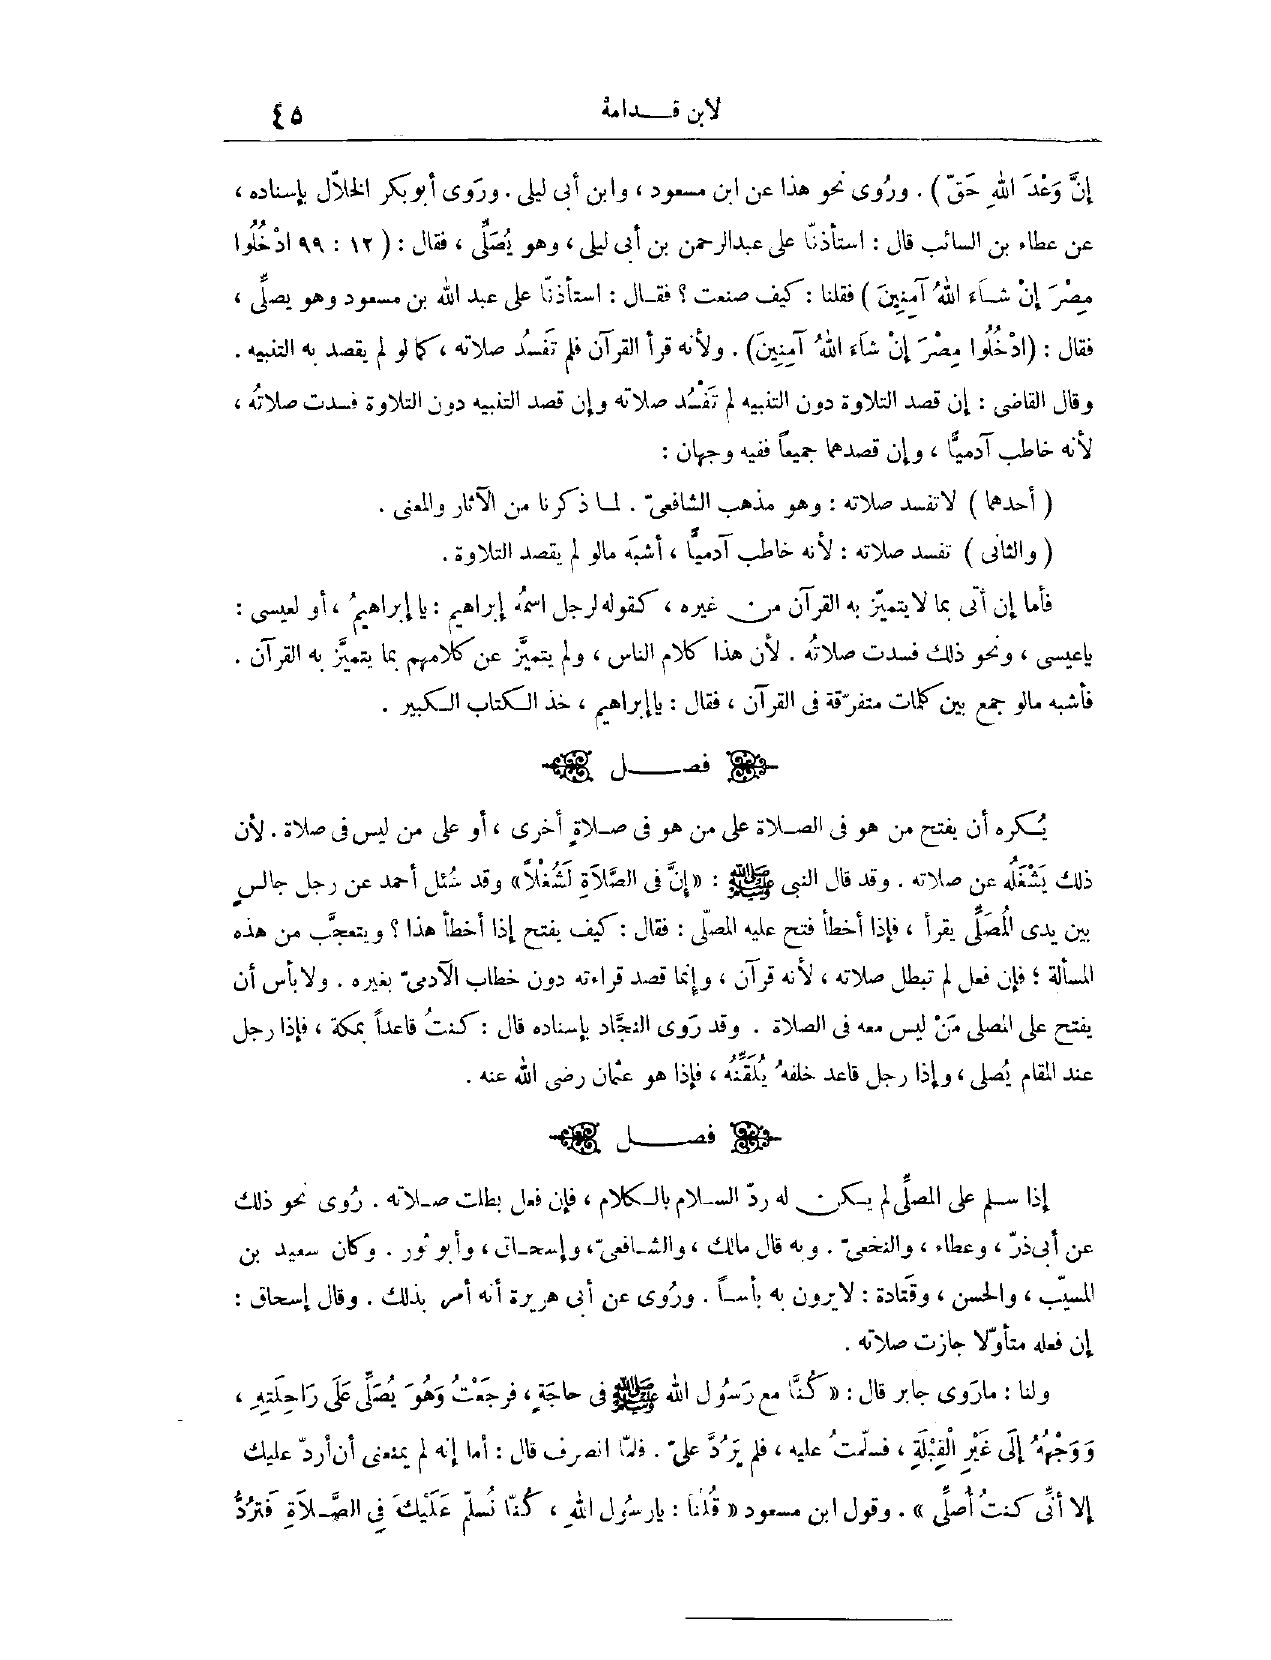 لابن قدامة ٤٥
إنَّ وَعْدَ اللهِ حَقّ ) . ورُوى نحو هذا عن ابن مسعود ، وابن أبى ليلى . وروَى أبو بكر الخلاّل بإسناده ،
عن عطاء بن السائب قال : استأذنّا على عبدالرحمن بن أبى ليلى ، وهو يُصَلِّى ، فقال : ( ١٢ : ٩٩ ادْخُلُوا
مِصْرَ إنْ شـاءَ اللهُ آمِنِينَ ) فقلنا : كيف صنعت ؟ فقـال : استأذنّا على عبد الله بن مسعود وهو يصلِّى ،
فقال : (ادْخُلُوا مِصْرَ إنْ شاءَ اللهُ آمِنِينَ) . ولأنه قرأ القرآن فلم تَفسُد صلاته ، كما لو لم يقصد به التنبيه .
وقال القاضى : إن قصد التلاوة دون التنبيه لم تَفْسُد صلاته وإن قصد التنبيه دون التلاوة فسدت صلاتُه ،
لأنه خاطب آدميًّا ، وإن قصدهما جميعاً ففيه وجهان :
( أحدهما ) لاتفسد صلاته : وهو مذهب الشافعىّ . لمـا ذكرنا من الآثار والمعنى .
( والثانى ) تفسد صلاته : لأنه خاطب آدميًّا ، أشبَه مالو لم يقصد التلاوة .
فأما إن أتى بما لا يتميّز به القرآن من غيره ، كقوله لرجل اسمُه إبراهيم : يا إبراهيمُ ، أو لعيسى :
ياعيسى ، ونحو ذلك فسدت صلاتُه . لأن هذا كلام الناس ، ولم يتميَّز عن كلامهم بما يتميَّز به القرآن .
فأشبه مالو جمع بين كلمات متفرّقة فى القرآن ، فقال : يا إبراهيم ، خذ الـكتاب الـكبير .
فصـــل
يُـكره أن يفتح من هو فى الصـلاة على من هو فى صـلاةٍ أخرى ، أو على من ليس فى صلاة . لأن
ذلك يَشْغَلُه عن صلاته . وقد قال النبى ﷺ : «إنَّ فى الصَّلاَةِ لَشُغْلاً» وقد سُئل أحمد عن رجل جالسٍ
بين يدى المُصَلِّى يقرأ ، فإذا أخطأ فتح عليه المصلّى : فقال : كيف يفتح إذا أخطأ هذا ؟ ويتعجَّب من هذه
المسألة ؛ فإن فعل لم تبطل صلاته ، لأنه قرآن ، وإنما قصد قراءته دون خطاب الآدمىّ بغيره . ولا بأس أن
يفتح على المصلى مَنْ ليس معه فى الصلاة . وقد رَوى النجَّاد بإسناده قال : كنتُ قاعداً بمكة ، فإذا رجل
عند المقام يُصلى ، وإذا رجل قاعد خلفهُ يُلَقِّنُه ، فإذا هو عثمان رضى الله عنه .
فصـــل
إذا سـلم على المصلِّى لم يـكن له ردّ السـلام بالـكلام ، فإن فعل بطلت صـلاته . رُوى نحو ذلك
عن أبى ذرّ ، وعطاء ، والنخعىّ . وبه قال مالك ، والشـافعىّ ، وإسحـاق ، وأبو ثور . وكان سعيد بن
المسيّب ، والحسن ، وقتادة : لا يرون به بأسـاً . ورُوى عن أبى هريرة أنه أمر بذلك . وقال إسحاق :
إن فعله متأوّلا جازت صلاته .
ولنا : ماروَى جابر قال : « كُنَّا مع رَسُول الله ﷺ فى حاجَةٍ ، فرجَعْتُ وَهُوَ يُصَلِّى عَلَى رَاحِلَتِهِ ،
وَوَجْهُهُ إلَى غَيْرِ الْقِبْلَةِ ، فسلّمتُ عليه ، فلم يَرُدَّ علىّ . فلمّا انصرف قال : أما إنه لم يمنعنى أن أردّ عليك
إلا أنِّى كنتُ أُصلِّى » . وقول ابن مسعود « قُلْنَا : يارسُول اللهِ ، كُنّا نُسلّم عَلَيْكَ فِى الصَّـلاَةِ فَتردُّ